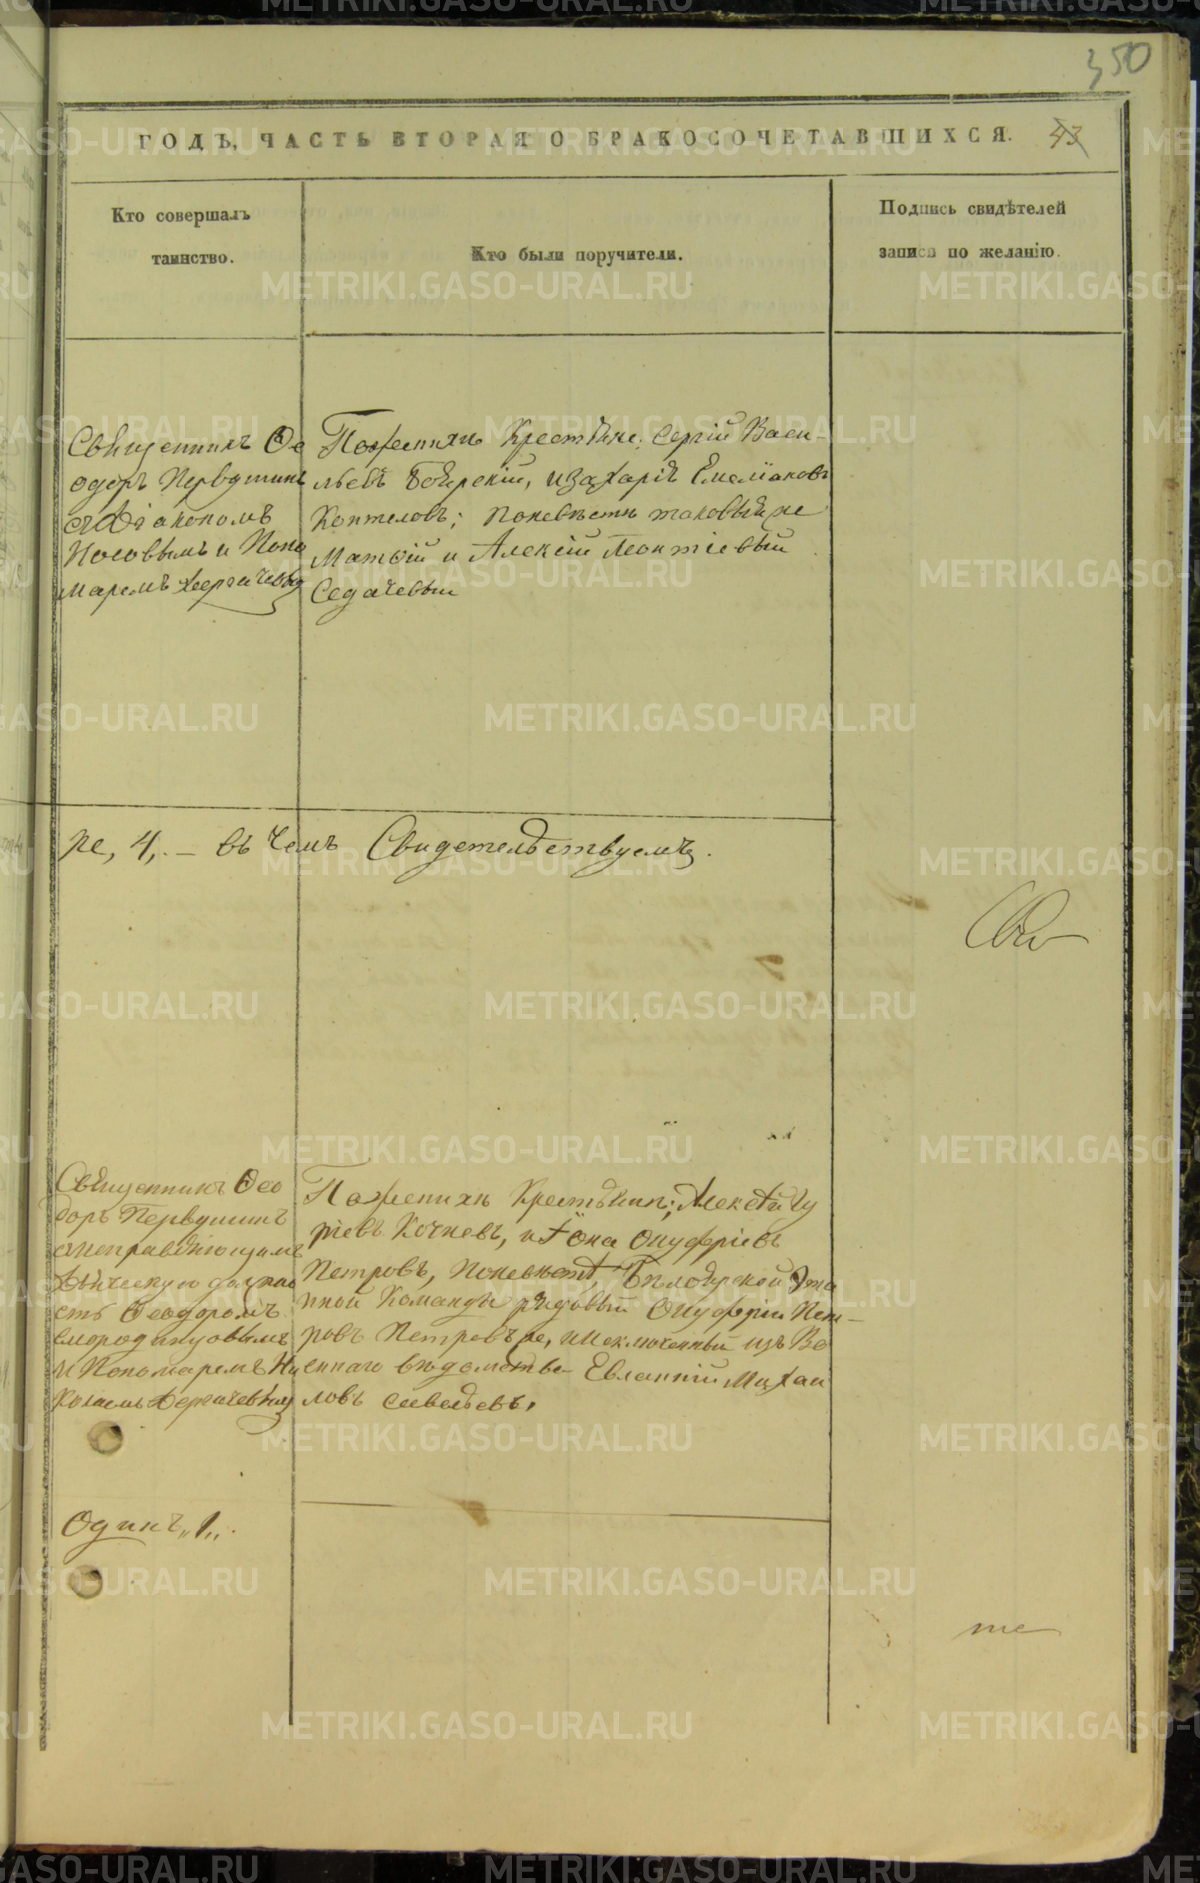 350
ГОДЪ, ЧАСТЬ ВТОРАЯ О БРАКОСОЧЕТАВШИХСЯ. 43
Кто совершалъ
таинство.
Кто были поручители.
Подпись свидѣтелей
записи по желанію.
Священникъ Ѳе
одоръ Первушинъ
съ Діакономъ
Носовымъ и Поно
маремъ Дергачевымъ
По женихѣ Крестьяне: Сергій Васи-
льевъ Боярскій, и Захарій Емеліановъ
Коптеловъ; По невѣстѣ таковые же
Матѳій и Алексій Леонтіевы
Седачевы
ре, 4, — въ чемъ Свидетельствуемъ.
Священникъ Ѳео
доръ Первушинъ
съ исправляющимъ
дьяческую должно
сть Ѳеодоромъ
Смородинцовымъ
и Пономаремъ Ни
колаемъ Дергачевымъ
По женихѣ Крестьяне: Алексѣй Гу
ріевъ Кочневъ, и Іона Онуфріевъ
Петровъ, По невѣстѣ, Белоярской Эта
пной Команды рядовый Онуфрій Пет-
ровъ Петровъ же, и Исключенный изъ Во
еннаго вѣдомства Евлампій Михаи
ловъ Савельевъ.
Одинъ „1„.
METRIKI.GASO-URAL.RU